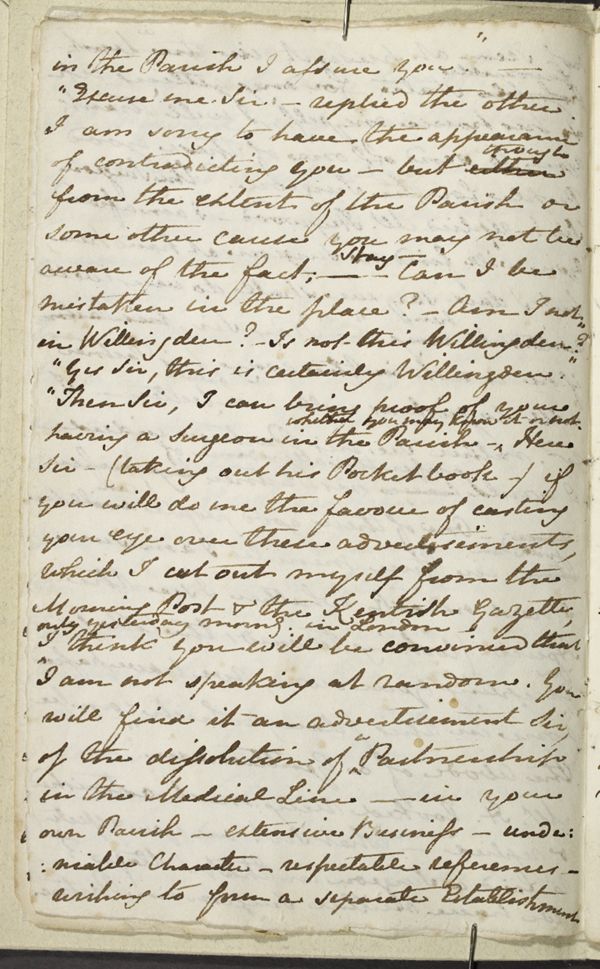 in the Parish I assure you ——"
"Excuse me Sir – replied the other.
I am sorry to have the appearance
of contradicting you – but either though
from the extent of the Parish or
some other cause you may not be
aware of the fact; —— Stay – Can I be
mistaken in the place? – Am I not
in Willingden? – Is not this Willingden?"
"Yes Sir, this is certainly Willingden."
"Then Sir, I can bring proof of your
having a Surgeon in the Parish – whether you may know it or not. Here
Sir – (taking out his Pocket book –) if
you will do me the favour of casting
your eye over these advertisements,
which I cut out myself from the
Morning Post & the Kentish Gazette,
only yesterday morng in London –
I think you will be convinced that
I am not speaking at random. You
will find it an advertisement Sir,
of the dissolution of a Partnership
in the Medical Line —— in your
own Parish – extensive Business – unde:
:niable Character – respectable references –
wishing to form a separate Establishment